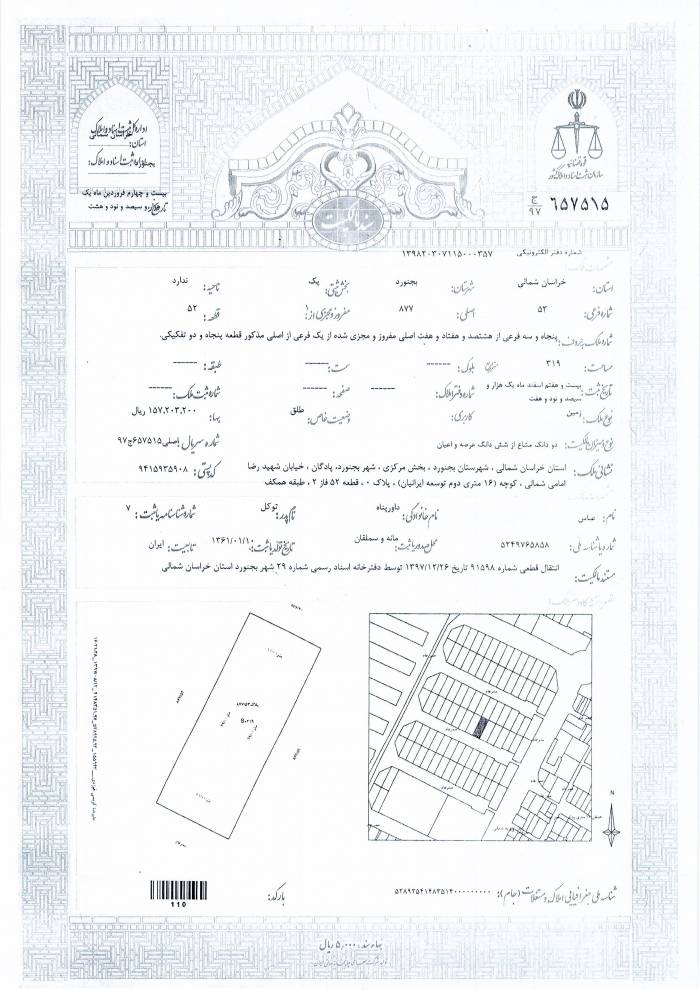 اداره کل ثبت اسناد و املاک
استان: خراسان شمالی
بیست و چهارم فروردین ماه یک
هزار و سیصد و نود و هشت
قوه قضائیه
سازمان ثبت اسناد و املاک کشور
۶۵۷۵۱۵ ج ۹۷
شماره دفتر الکترونیکی ۱۳۹۸۲۰۳۰۷۱۱۵۰۰۰۳۵۷
استان: خراسان شمالی شهرستان: بجنورد بخش ثبتی: یک ناحیه: ندارد
شماره فرعی: ۵۳ اصلی: ۸۷۷ مفروز و مجزی از: ۱ قطعه: ۵۲
شماره ملک بحروف: پنجاه و سه فرعی از هشتصد و هفتاد و هفت اصلی مفروز و مجزی شده از یک فرعی از اصلی مذکور قطعه پنجاه و دو تفکیکی.
مساحت: ۳۱۹ مترمربع بلوک: ------ سمت: ------ طبقه: ------
تاریخ ثبت: بیست و هفتم اسفند ماه یک هزار و سیصد و نود و هفت شماره دفتر املاک: ------ صفحه: ------ شماره ثبت ملک: ------
نوع ملک: زمین کاربری: وضعیت خاص: طلق بها: ۱۵۷,۲۰۳,۲۰۰ ریال
نوع و میزان مالکیت: دو دانگ مشاع از شش دانگ عرصه و اعیان شماره سریال: اصلی۶۵۷۵۱۵ج۹۷
نشانی ملک: استان خراسان شمالی ، شهرستان بجنورد ، بخش مرکزی ، شهر بجنورد، پادگان، خیابان شهید رضا کد پستی: ۹۴۱۵۹۳۵۹۰۸
امامی شمالی ، کوچه (۱۶ متری دوم توسعه ایرانیان) ، پلاک ۰ ، قطعه ۵۲ فاز ۲ ، طبقه همکف
نام: عباس نام خانوادگی: داورپناه نام پدر: توکل شماره شناسنامه یا ثبت: ۷
شماره یا شناسه ملی: ۵۲۴۹۷۶۵۸۵۸ محل صدور یا ثبت: مانه و سملقان تاریخ تولد یا ثبت: ۱۳۶۱/۰۱/۱۰ تابعیت: ایران
مستند مالکیت: انتقال قطعی شماره ۹۱۵۹۸ تاریخ ۱۳۹۷/۱۲/۲۶ توسط دفترخانه اسناد رسمی شماره ۲۹ شهر بجنورد استان خراسان شمالی
N
شناسه ملی جغرافیایی املاک و مستغلات (جام): ۵۲۸۹۲۵۴۱۴۸۳۵۱۴۰۰۰۰۰۰۰۰۰۰
بارکد:
110
بهاء سند: ۵,۰۰۰ ریال